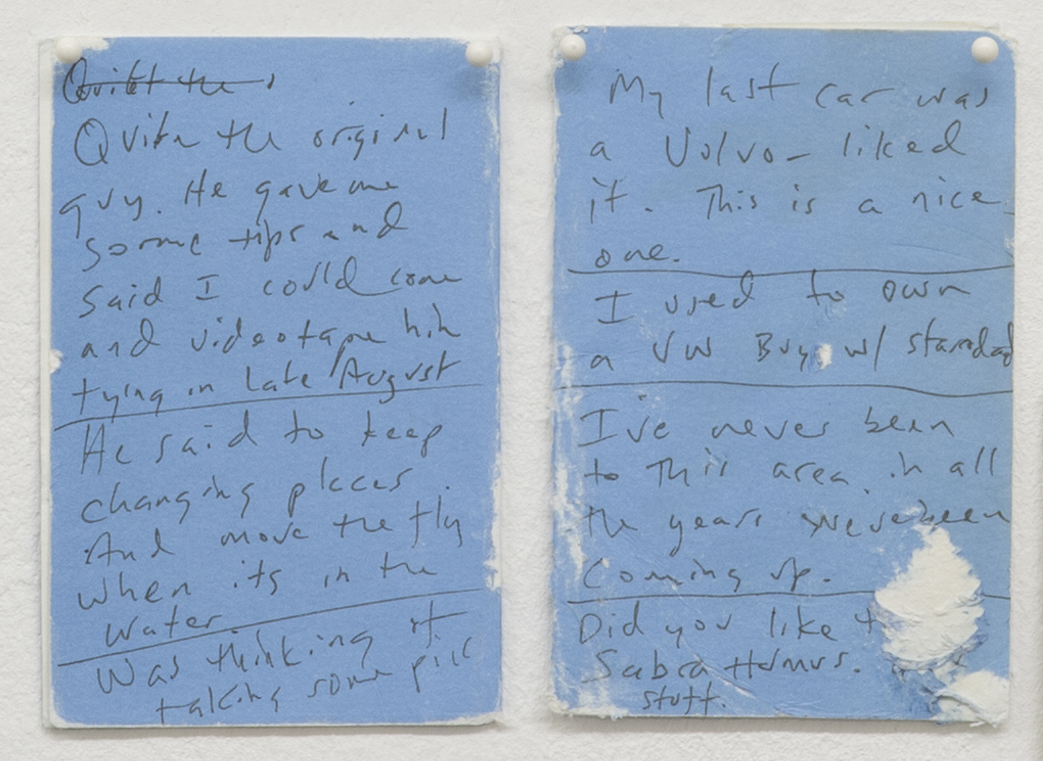 Quite the
Quite the original
guy. He gave me
some tips and
said I could come
and videotape him
tying in late August
He said to keep
changing places.
And move the fly
when its in the
water
Was thinking of
taking some pics
My last car was
a Volvo – liked
it. This is a nice
one.
I used to own
a VW Bug w/ standard
I've never been
to this area in all
the years we've been
coming up.
Did you like
Sabra Humus.
stuff.